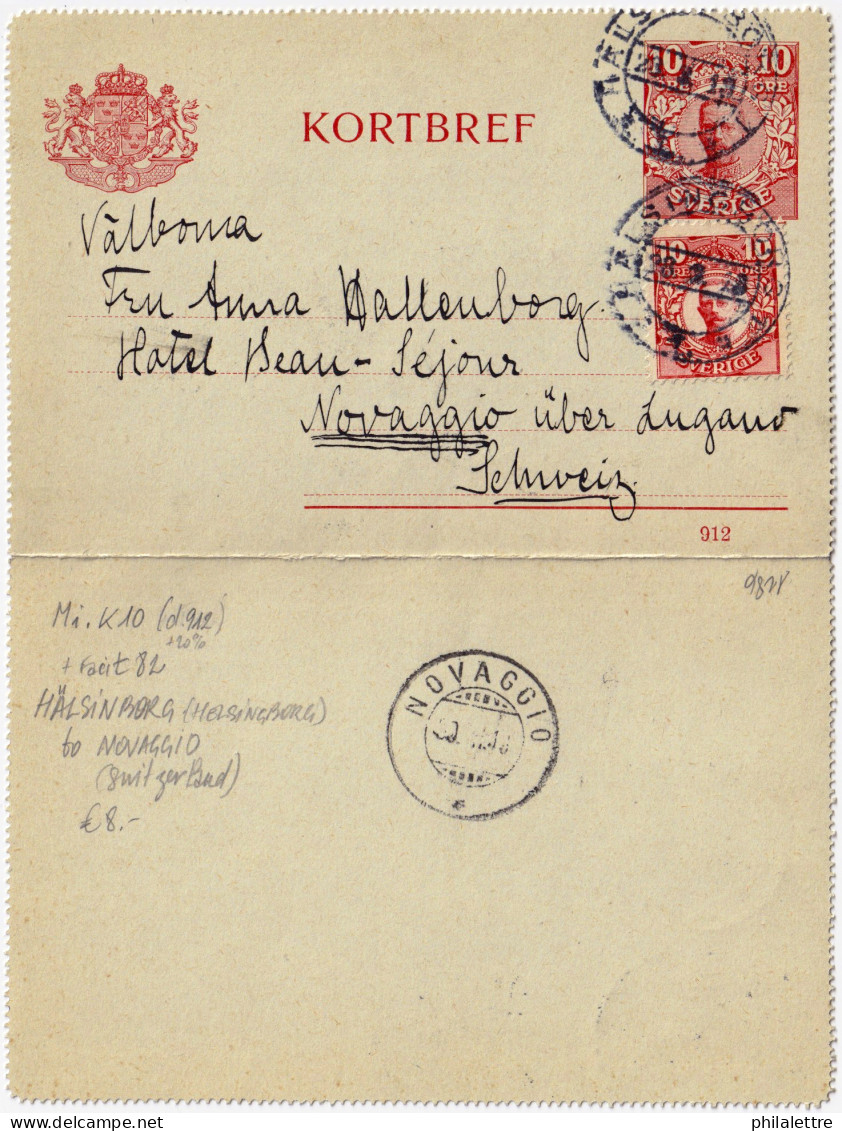 KORTBREF
10 10
ÖRE
SVERIGE
10 10
ÖRE ÖRE
SVERIGE
Välborna
Fru Anna Hallenborg.
Hotel Beau-Séjour
Novaggio über Lugano
Schweiz
912
Mi. K10 (d.912)
+20%
+ Facit 82
HÄLSINBORG (HELSINGBORG)
to NOVAGGIO
(Switzerland)
€8.-
NOVAGGIO
philalettre